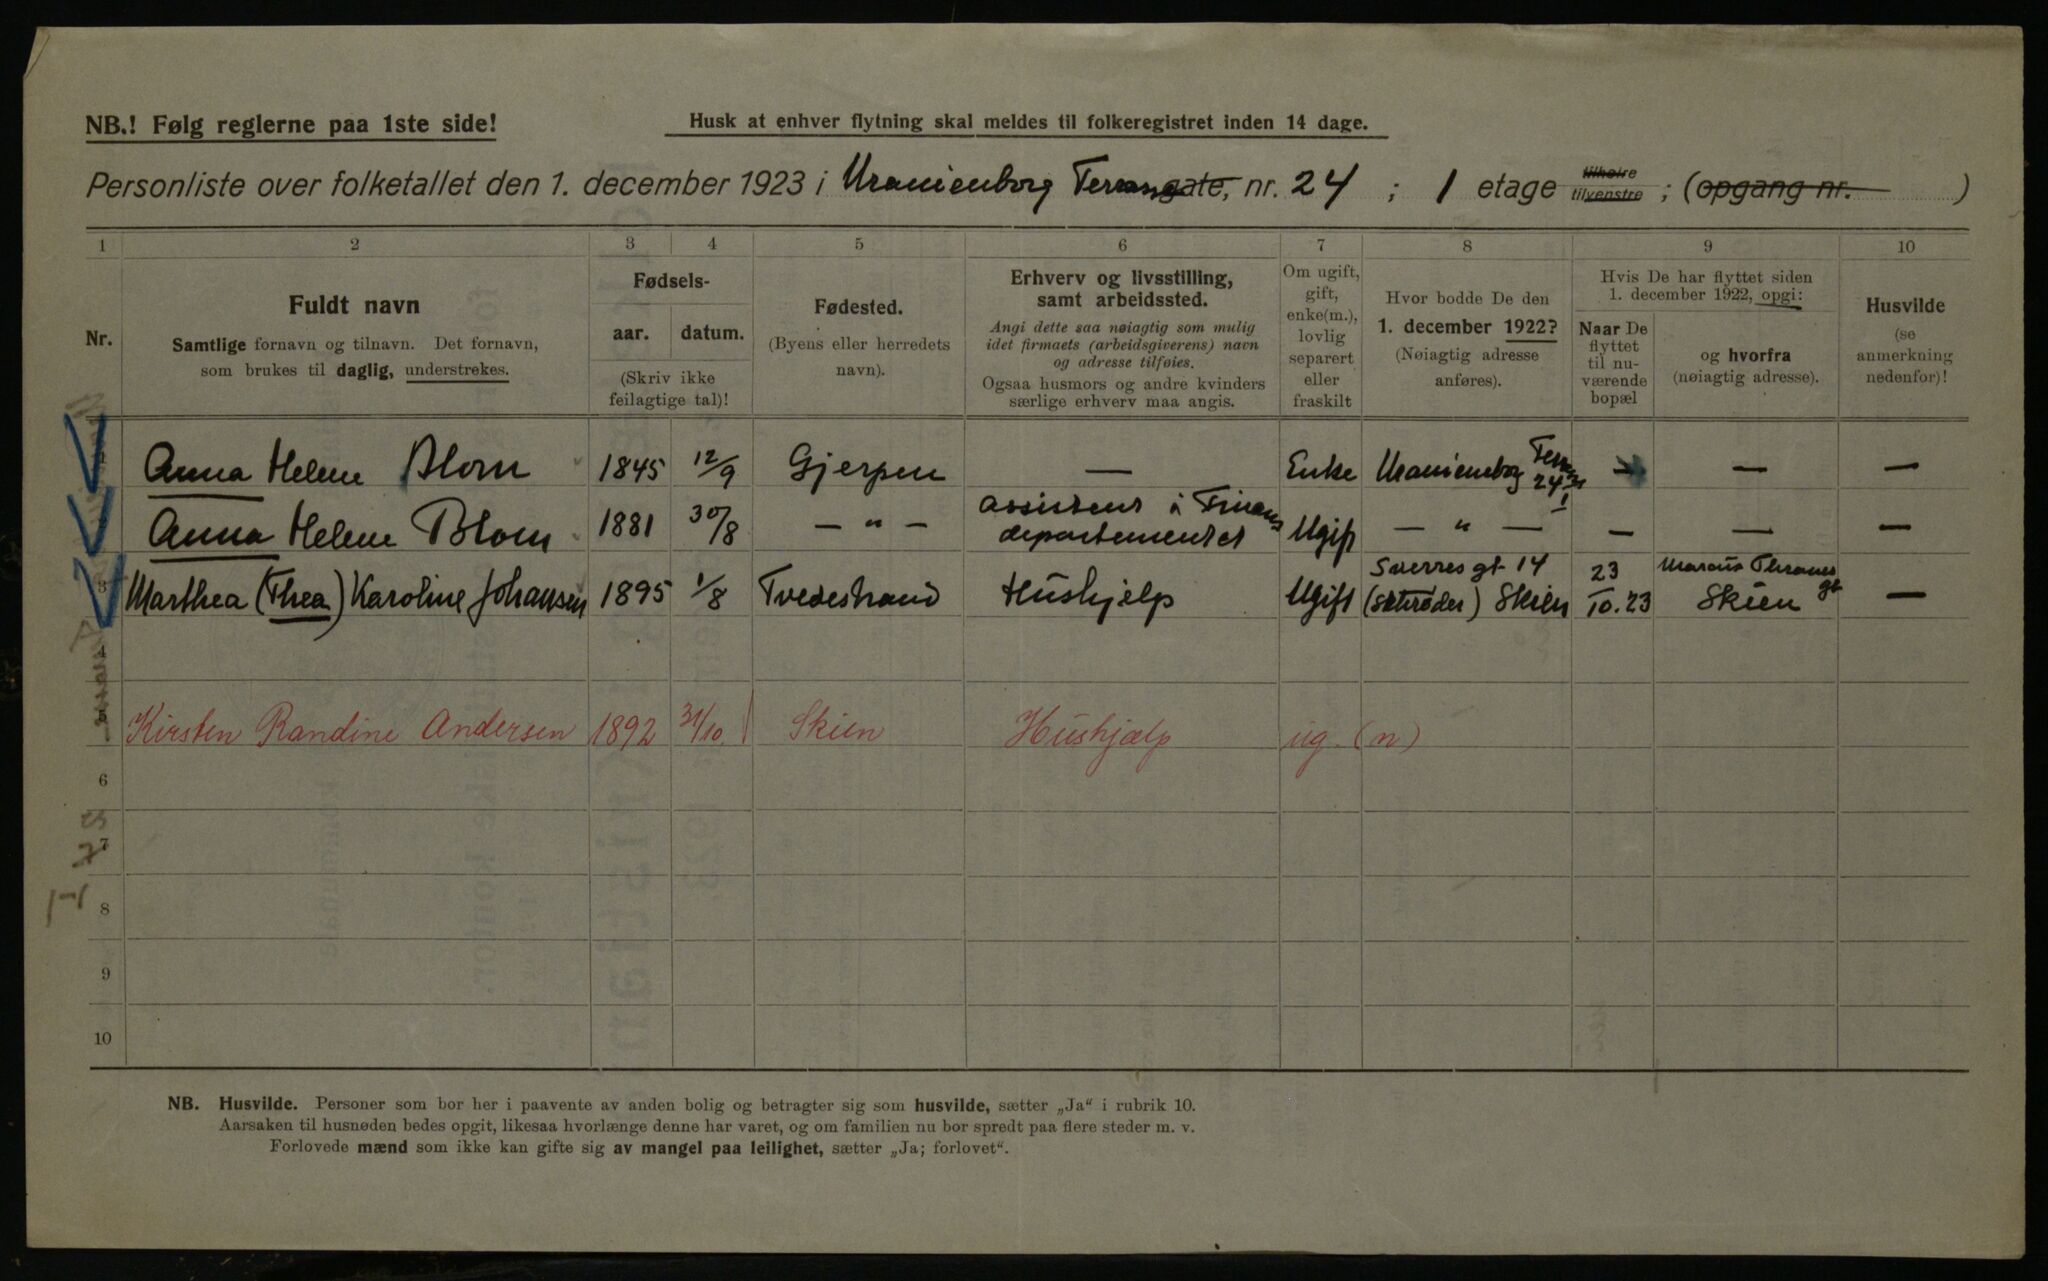 NB.! Følg reglerne paa 1ste side!
Husk at enhver flytning skal meldes til folkeregistret inden 14 dage.
Personliste over folketallet den 1. december 1923 i Uranienborg Terrasse gate, nr. 24 ; 1 etage tilhøire tilvenstre ; (opgang nr. )
1 2 3 4 5 6 7 8 9 10
Nr.
Fuldt navn
Samtlige fornavn og tilnavn. Det fornavn,
som brukes til daglig, understrekes.
Fødsels-
aar. datum.
(Skriv ikke
feilagtige tal)!
Fødested.
(Byens eller herredets
navn).
Erhverv og livsstilling,
samt arbeidssted.
Angi dette saa nøiagtig som mulig
idet firmaets (arbeidsgiverens) navn
og adresse tilføies.
Ogsaa husmors og andre kvinders
særlige erhverv maa angis.
Om ugift,
gift,
enke(m.),
lovlig
separert
eller
fraskilt
Hvor bodde De den
1. december 1922?
(Nøiagtig adresse
anføres).
Hvis De har flyttet siden
1. december 1922, opgi:
Naar De
flyttet
til nu-
værende
bopæl
og hvorfra
(nøiagtig adresse).
Husvilde
(se
anmerkning
nedenfor)!
Anna Helene Blom 1845 12/9 Gjerpen — Enke Uranienborg Terrasse 24 I — — —
Anna Helene Blom 1881 30/8 — „ — Assistent i Finans departementet Ugift — „ — — — —
3 Marthea (Thea) Karoline Johansen 1895 1/8 Tvedestrand Hushjelp Ugift Sverres gt 14 (Schrøder) Skien 23/10.23 Marcus Thranes gt Skien —
4
5 Kirsten Randine Andersen 1892 31/10. Skien Hushjælp ug. (n)
6
7
8
9
10
NB. Husvilde. Personer som bor her i paavente av anden bolig og betragter sig som husvilde, sætter „Ja“ i rubrik 10.
Aarsaken til husnøden bedes opgit, likesaa hvorlænge denne har varet, og om familien nu bor spredt paa flere steder m. v.
Forlovede mænd som ikke kan gifte sig av mangel paa leilighet, sætter „Ja; forlovet“.